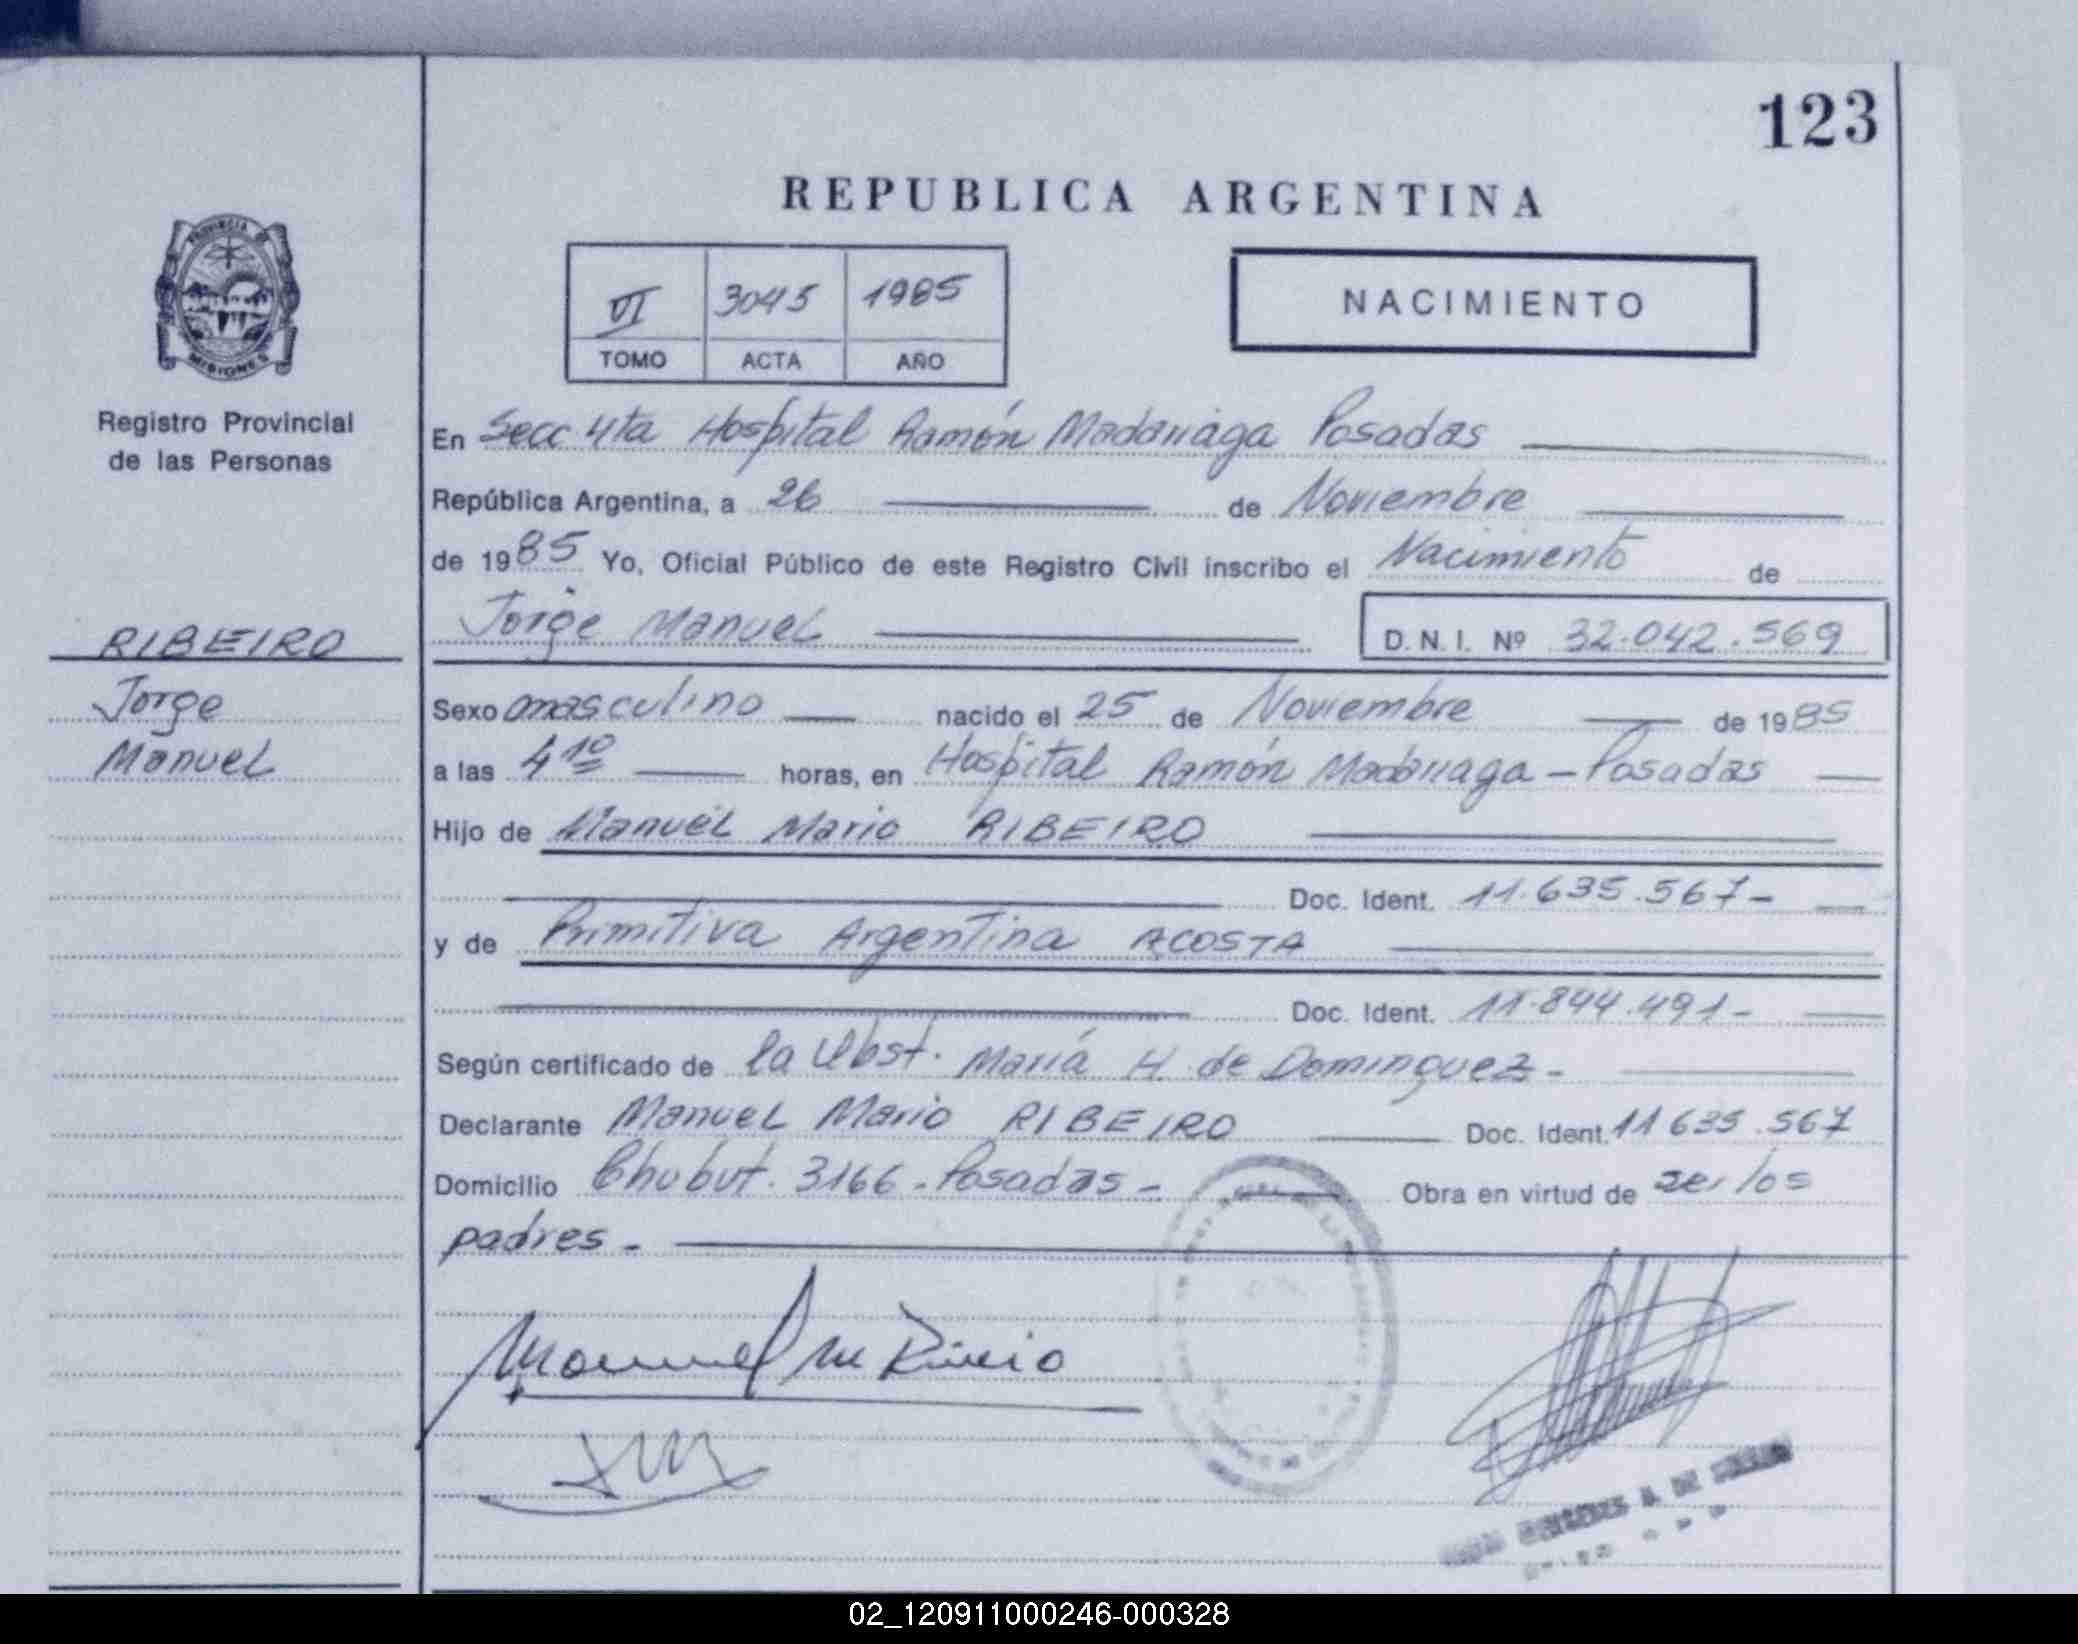 123
REPUBLICA ARGENTINA
PROVINCIA DE
MISIONES
VI 3045 1985
TOMO ACTA AÑO
NACIMIENTO
Registro Provincial
de las Personas
RIBEIRO
Jorge
Manuel
En Secc 4ta Hospital Ramón Madariaga Posadas
República Argentina, a 26 de Noviembre
de 1985 Yo, Oficial Público de este Registro Civil inscribo el Nacimiento de
Jorge Manuel D.N.I. Nº 32.042.569
Sexo masculino nacido el 25 de Noviembre de 1985
a las 4 10 horas, en Hospital Ramón Madariaga - Posadas
Hijo de Manuel Mario RIBEIRO
Doc. Ident. 11.635.567-
y de Primitiva Argentina ACOSTA
Doc. Ident. 11.844.491-
Según certificado de la Obst. María H. de Dominguez-
Declarante Manuel Mario RIBEIRO Doc. Ident. 11635.567
Domicilio Chubut. 3166-Posadas- Obra en virtud de ser los
padres-
Manuel M
A. DE
02_120911000246-000328